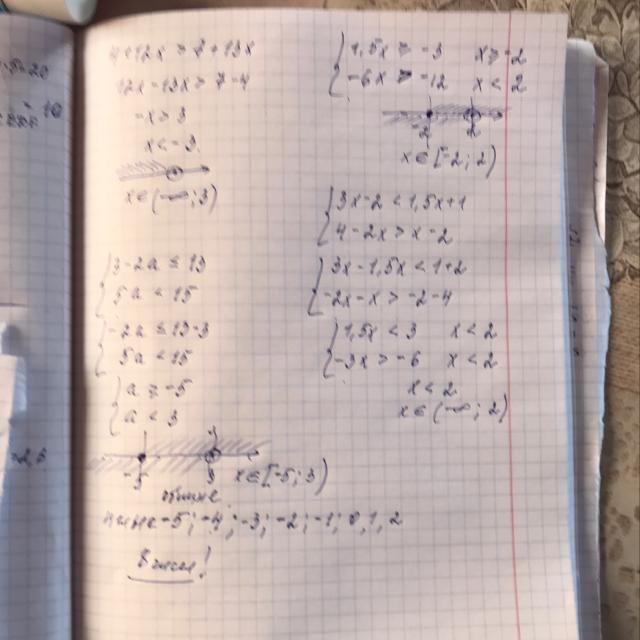 4+12x > 7+13x
12x-13x > 7-4
-x > 3
x < -3
x∈(-∞;3)
{3-2a ≤ 13
5a < 15
{-2a ≤ 13-3
5a < 15
{a ≥ -5
a < 3
-5 3
x∈[-5;3)
-5; -4; -3; -2; -1; 0, 1, 2
{1,5x ≥ -3 x ≥ -2
-6x > -12 x < 2
-2 2
x∈[-2;2)
{3x-2 < 1,5x+1
4-2x > x-2
{3x-1,5x < 1+2
-2x-x > -2-4
{1,5x < 3 x < 2
-3x > -6 x < 2
x < 2
x∈(-∞;2)